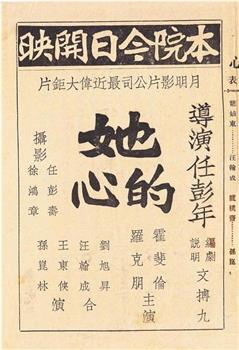 本院今日開映
月明影片公司最近偉大鉅片
導演任彭年
編劇
說明
文搏九
她的心
霍斐倫
羅克朋
主演
劉旭昇
汪翰成
王東俠
孫崑林
合演
攝影
任彭壽
徐鴻章
心
表
汪翰成
孫崑